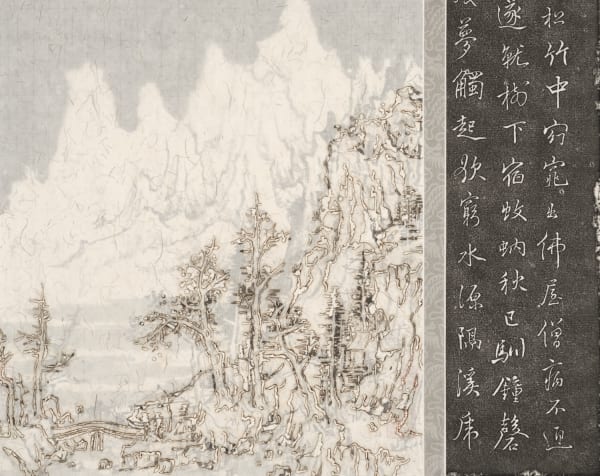 松竹中窈窕出佛屋僧病不迎
遂就樹下宿蚊蚋秋已馴鐘磬
夢觸起欲窮水源隔溪虎